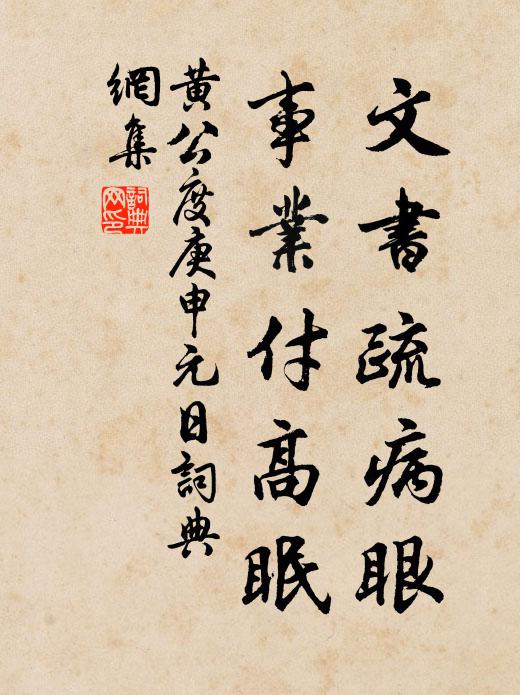 文書疏病眼
事業付高眠
黃公度庚申元日詞典
網集
詞典
网印